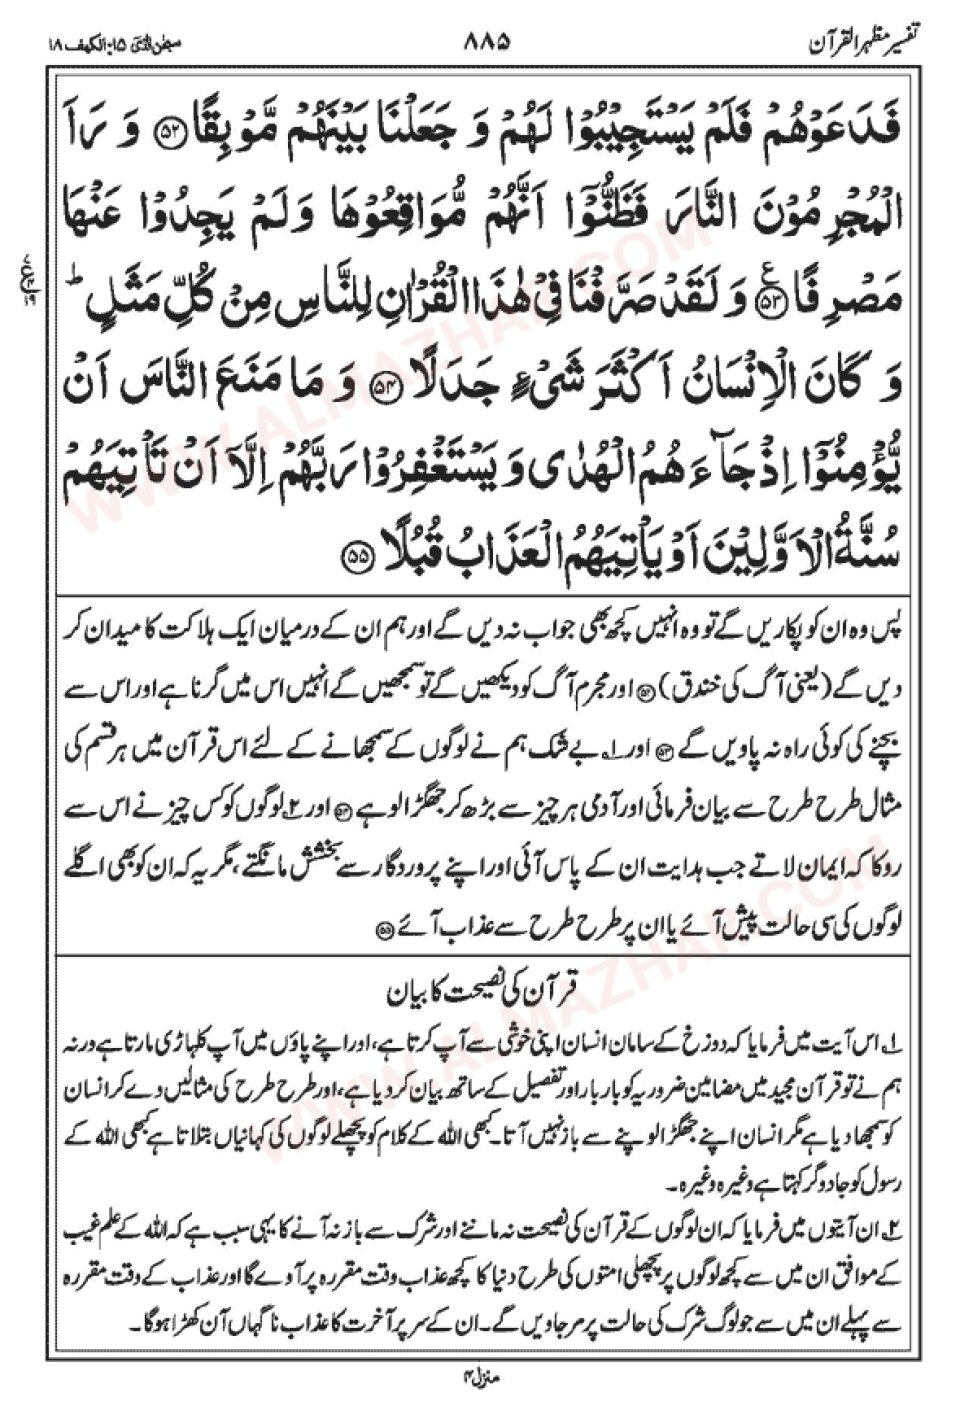 تفسیر مظہر القرآن ۸۸۵ سبحٰن الذی ۱۵: الکہف ۱۸
فَدَعَوْهُمْ فَلَمْ يَسْتَجِيْبُوْا لَهُمْ وَ جَعَلْنَا بَيْنَهُمْ مَّوْبِقًا ۵۲ وَ رَاَ
الْمُجْرِمُوْنَ النَّارَ فَظَنُّوْۤا اَنَّهُمْ مُّوَاقِعُوْهَا وَ لَمْ يَجِدُوْا عَنْهَا
مَصْرِفًا ۵۳ ع وَ لَقَدْ صَرَّفْنَا فِیْ هٰذَا الْقُرْاٰنِ لِلنَّاسِ مِنْ كُلِّ مَثَلٍ ؕ
وَ كَانَ الْاِنْسَانُ اَكْثَرَ شَیْءٍ جَدَلًا ۵۴ وَ مَا مَنَعَ النَّاسَ اَنْ
يُّؤْمِنُوْۤا اِذْ جَآءَهُمُ الْهُدٰى وَ يَسْتَغْفِرُوْا رَبَّهُمْ اِلَّاۤ اَنْ تَاْتِيَهُمْ
سُنَّةُ الْاَوَّلِيْنَ اَوْ يَاْتِيَهُمُ الْعَذَابُ قُبُلًا ۵۵
پس وہ ان کو پکاریں گے تو وہ انہیں کچھ بھی جواب نہ دیں گے اور ہم ان کے درمیان ایک ہلاکت کا میدان کر
دیں گے (یعنی آگ کی خندق) ۵۲ اور مجرم آگ کو دیکھیں گے تو سمجھیں گے انہیں اس میں گرنا ہے اور اس سے
بچنے کی کوئی راہ نہ پاویں گے ۵۳ اور ۱؎ بے شک ہم نے لوگوں کے سمجھانے کے لئے اس قرآن میں ہر قسم کی
مثال طرح طرح سے بیان فرمائی اور آدمی ہر چیز سے بڑھ کر جھگڑالو ہے ۵۴ اور ۲؎ لوگوں کو کس چیز نے اس سے
روکا کہ ایمان لاتے جب ہدایت ان کے پاس آئی اور اپنے پروردگار سے بخشش مانگتے، مگر یہ کہ ان کو بھی اگلے
لوگوں کی سی حالت پیش آئے یا ان پر طرح طرح سے عذاب آئے ۵۵
قرآن کی نصیحت کا بیان
۱؎ اس آیت میں فرمایا کہ دوزخ کے سامان انسان اپنی خوشی سے آپ کرتا ہے، اور اپنے پاؤں میں آپ کلہاڑی مارتا ہے ورنہ
ہم نے تو قرآن مجید میں مضامین ضروریہ کو بار بار اور تفصیل کے ساتھ بیان کر دیا ہے، اور طرح طرح کی مثالیں دے کر انسان
کو سمجھا دیا ہے مگر انسان اپنے جھگڑالو پنے سے باز نہیں آتا۔ کبھی اللہ کے کلام کو پچھلے لوگوں کی کہانیاں بتلاتا ہے کبھی اللہ کے
رسول کو جادوگر کہتا ہے وغیرہ وغیرہ۔
۲؎ ان آیتوں میں فرمایا کہ ان لوگوں کے قرآن کی نصیحت نہ ماننے اور شرک سے باز نہ آنے کا یہی سبب ہے کہ اللہ کے علم غیب
کے موافق ان میں سے کچھ لوگوں پر پچھلی امتوں کی طرح دنیا کا کچھ عذاب وقت مقررہ پر آوے گا اور عذاب کے وقت مقررہ
سے پہلے ان میں سے جو لوگ شرک کی حالت پر مر جاویں گے۔ ان کے سر پر آخرت کا عذاب ناگہاں آن کھڑا ہوگا۔
منزل ۴
WWW.ALMAZHAR.COM
WWW.ALMAZHAR.COM